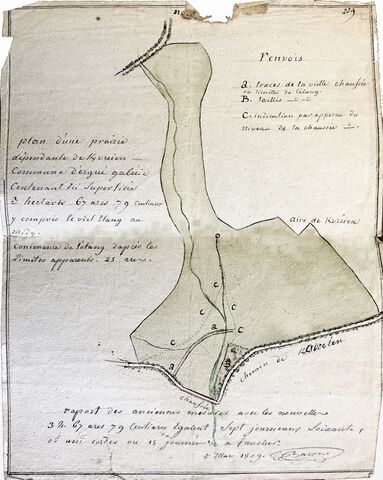 Renvois
a. traces de la vielle chaussée
ou limites de l'étang
B. taillis
C. indication par apperçu du
niveau de la chaussée
plan d'une prairie
dépendante de Kvreien
Commune d'ergué gabéric
Contenant En Superficie
3 hectares 67 ares 79 Centiares
y compris le viel Etang au
midy.
Contenance de l'étang d'après les
limites apparents. 25 ares.
Aire de Kvreien
a
c
c
c
c
B
Chaussée
Chemin de
raport des anciennes mesures avec les nouvelles
3 h. 67 ares 79 Centiares Egalent Sept journeaux Soixante
et une cordes ou 15 journées à faucher.
5 Mai 1809. Barone